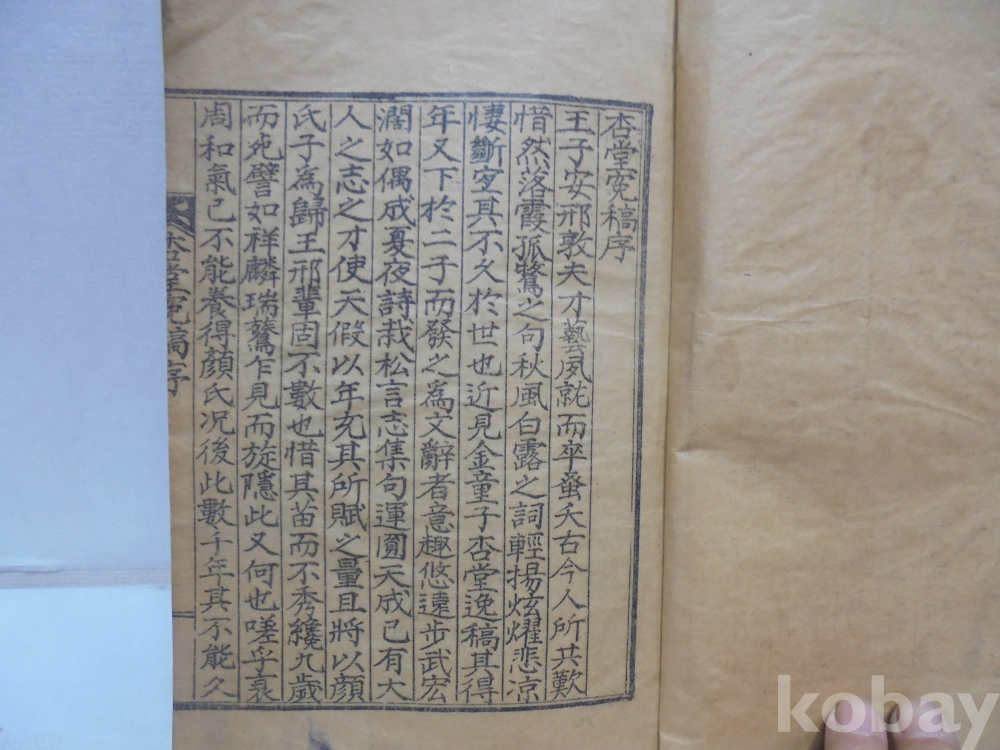 杏堂寃稿序
王子安邢敦夫才藝夙就而卒蚤夭古今人所共歎
惜然落霞孤鶩之句秋風白露之詞輕揚炫耀悲凉
悽斷宜其不久於世也近見金童子杏堂逸稿其得
年又下於二子而發之為文辭者意趣悠遠步武宏
濶如偶成夏夜詩栽松言志集句運圓天成已有大
人之志之才使天假以年充其所賦之量且將以顔
氏子為歸王邢輩固不數也惜其苗而不秀纔九歲
而死譬如祥麟瑞鷟乍見而旋隱此又何也嗟乎衰
周和氣已不能養得顔氏况後此數千年其不能久
杏堂寃稿序
kobay